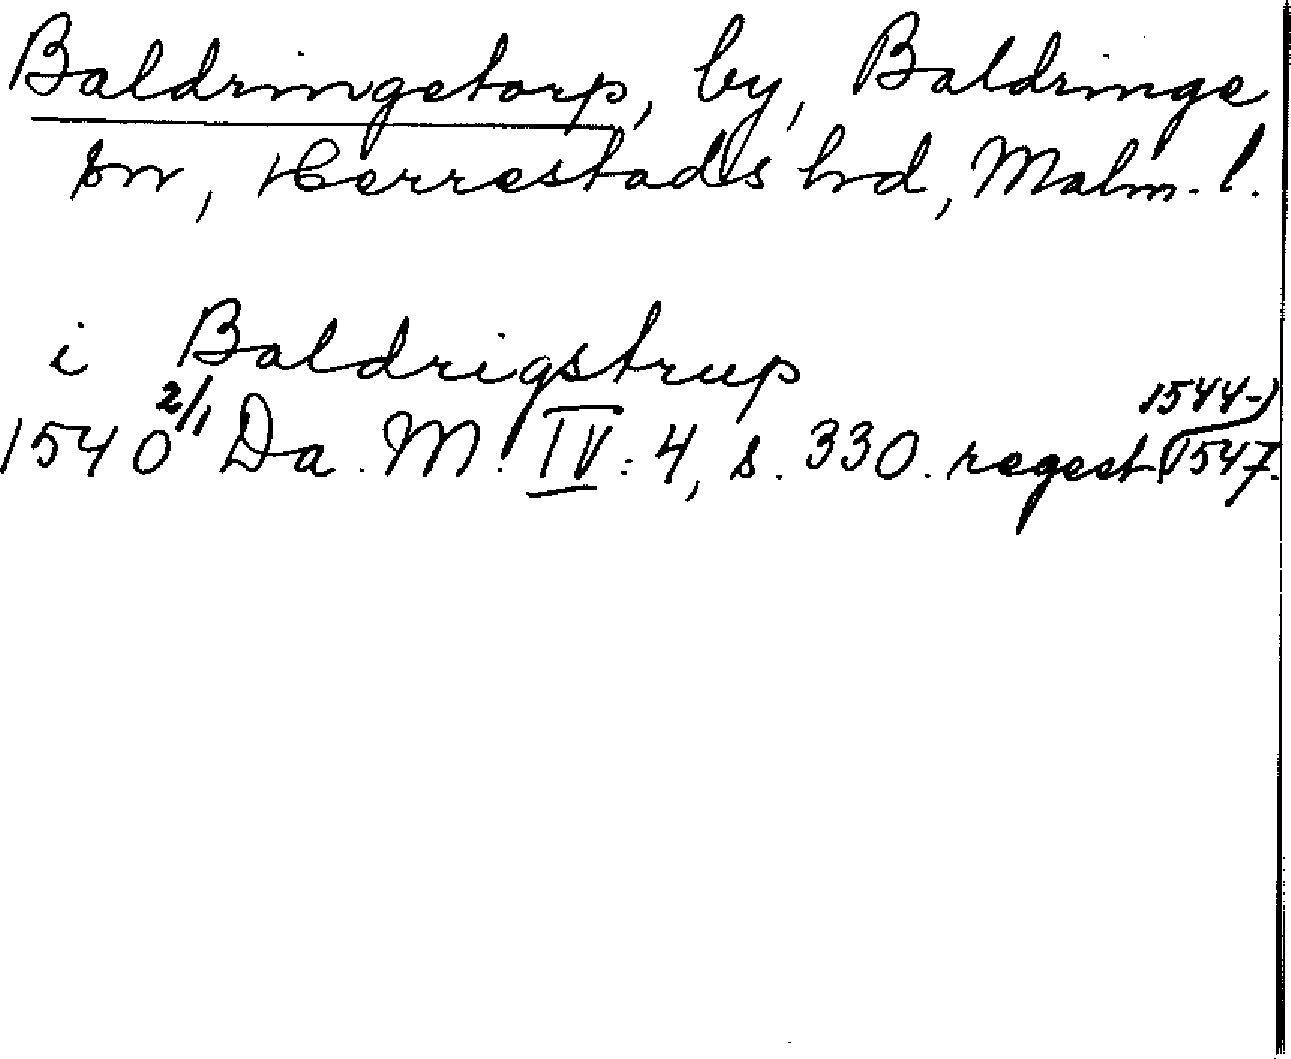 Baldringetorp, by, Baldringe
sn, Herrestads hd, Malm. l.
i Baldrigstrup
1540 2/1 Da. M. IV: 4, s. 330. regest (1544-)
1547.